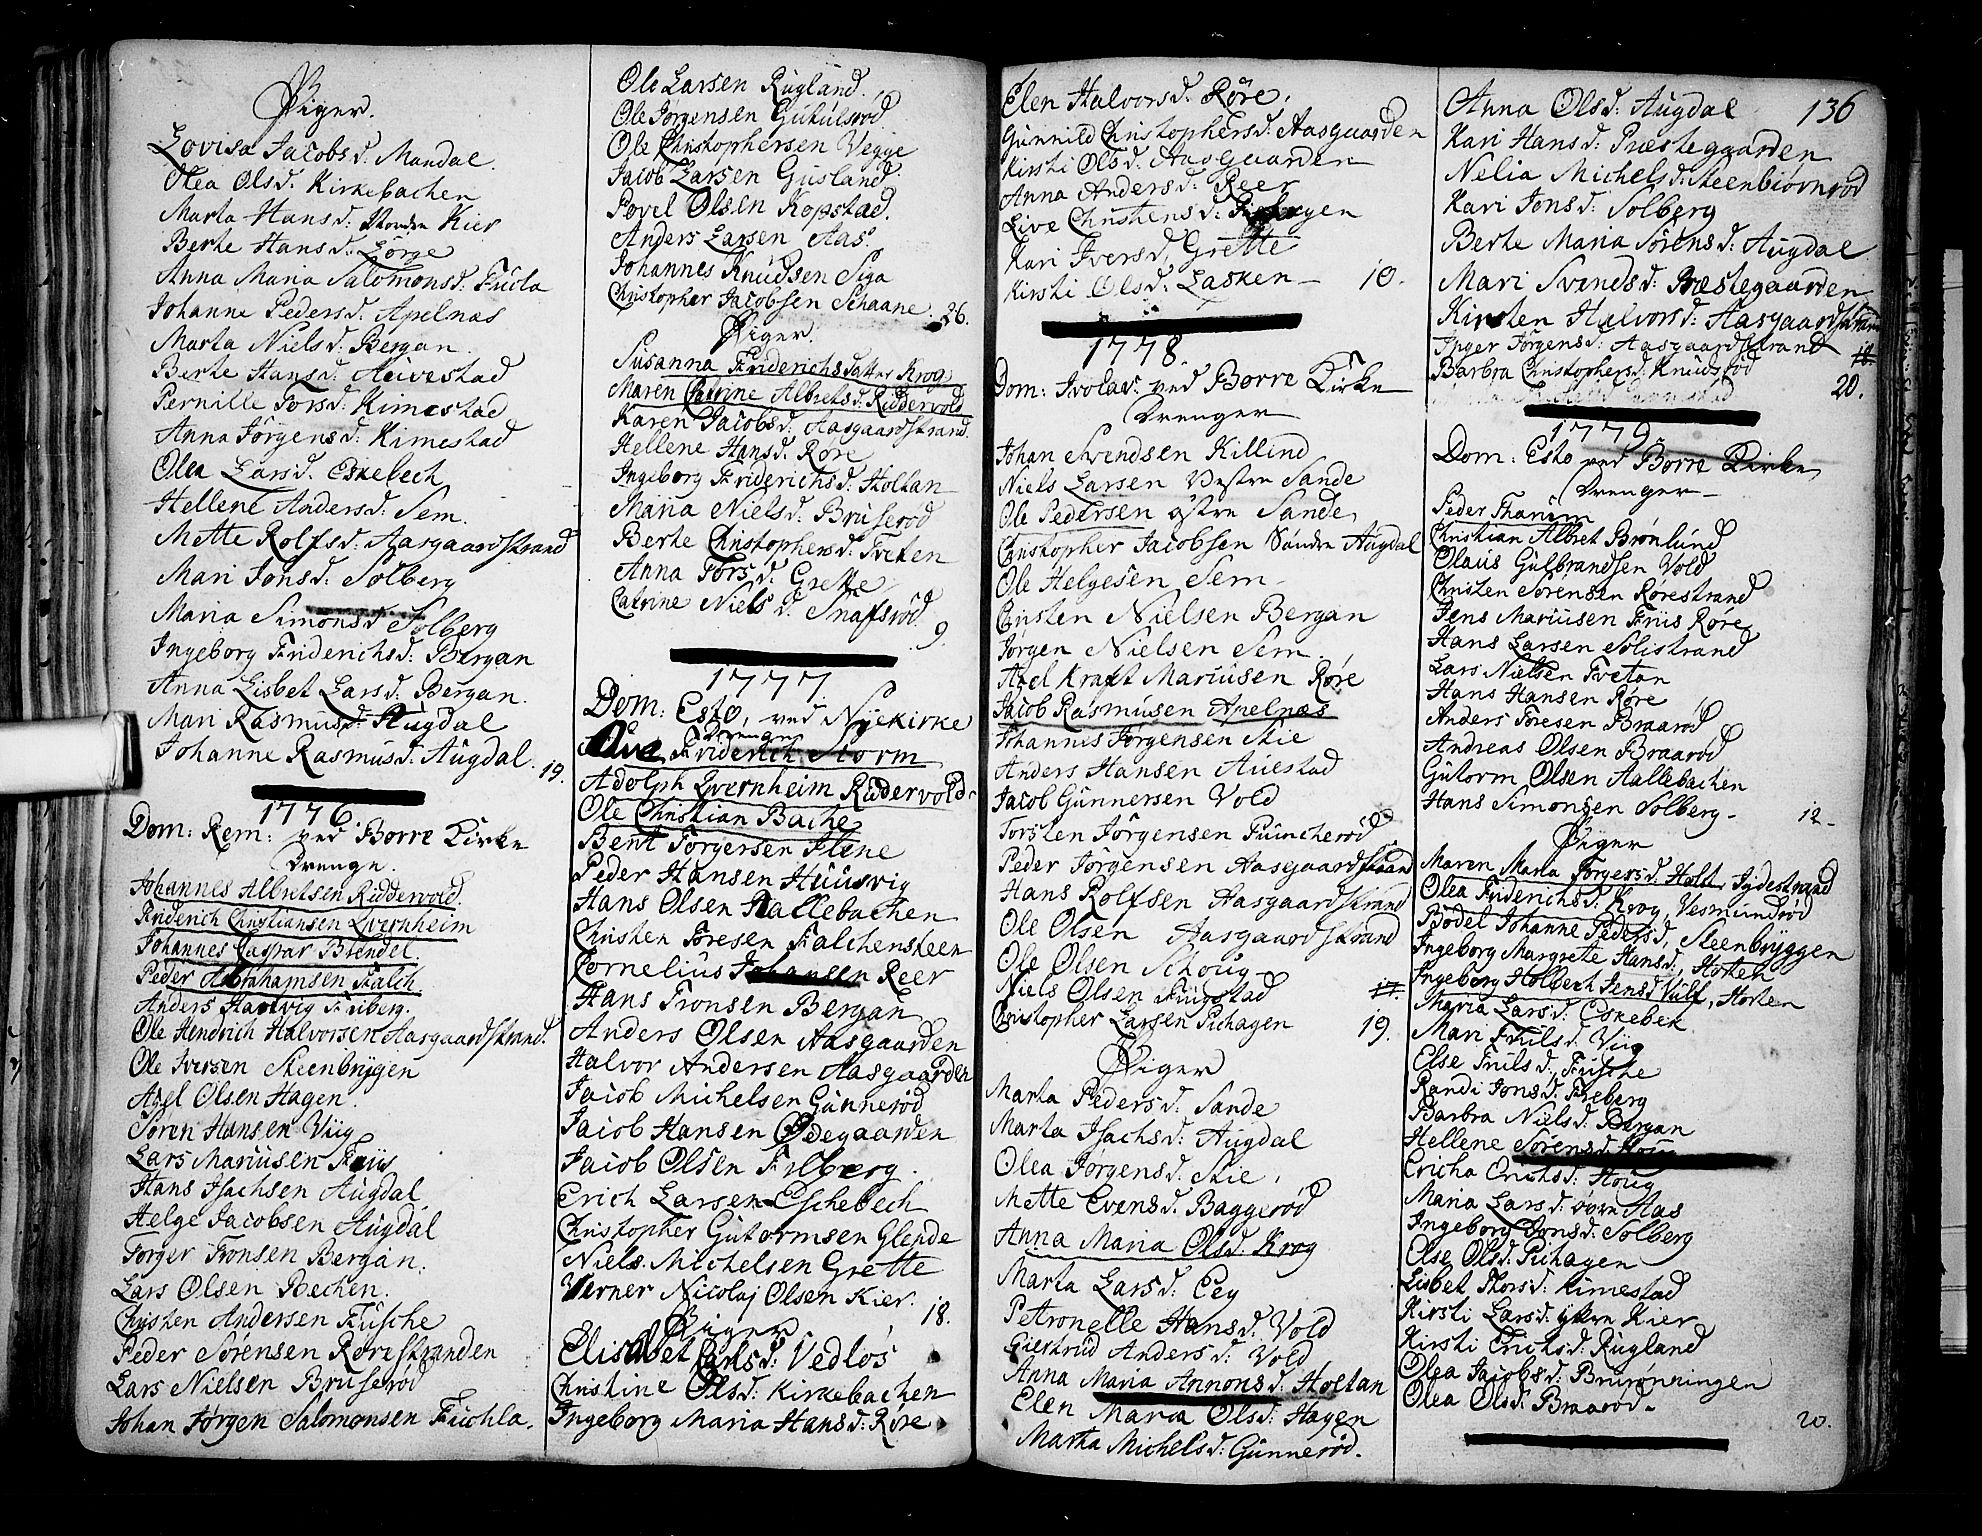 Piger.
Lovisa Jacobsd: Mandal.
Olea Olsd: Kirkebachen
Marta Hansd: Kier
Berte Hansd: Lørge
Anna Maria Salomonsd: Fucla
Johanne Pedersd: Apelnæs
Marta Nielsd: Bergan.
Berte Hansd: Auvestad
Pernille Torsd: Kimestad
Anna Jørgensd: Kimestad
Olea Larsd: Eskebech
Hellene Andersd: Sem.
Mette Rolfsd: Aasgaardstrand
Mari Jonsd: Solberg
Maria Simonsd Solberg
Ingeborg Friderichsd: Bergan
Anna Lisbet Larsd: Bergan.
Mari Rasmusd: Augdal
Johanne Rasmusd: Augdal. 19.
1776.
Dom: Rem: ved Borre Kirke
Drenge.
Johannes Albretsen Riddervold.
Friderich Christiansen Qvernheim
Johannes Caspar Brendel.
Peder Abrahamsen Falch.
Anders Hartvig Friberg.
Ole Hendrich Halvorsen Aasgaardstrand.
Ole Iversen Steenbrygen
Axel Olsen Hagen.
Søren Hansen Viig
Lars Mariusen Friis
Hans Isachsen Augdal
Helge Jacobsen Augdal
Torger Tronsen Bergan.
Lars Olsen Bechen.
Christen Andersen Fusche
Peder Sørensen Rørestranden
Lars Nielsen Bruserød
Johan Jørgen Salomonsen Fuchla.
Ole Larsen Rugland.
Ole Jørgensen Gutulsrød
Ole Christophersen Vegge
Jacob Larsen Gusland
Povel Olsen Kopstad.
Anders Larsen Aas.
Johannes Knudsen Siga
Christopher Jacobsen Schaane. 26.
Piger.
Susanna Friderichsdatter Krog
Maren Catrine Albretsd: Riddervold
Karen Jacobsd: Aasgaardstrand.
Hellene Hansd: Røre
Ingeborg Friderichsd: Holtan
Maria Nielsd: Bruserød
Berte Christophersd: Tveten
Anna Torsd: Grette
Catrine Nielsd: Snafsrød. 9.
1777.
Dom: Esto, ved Nyekirke
Drenger
Friderich Storm
Adolph Qvernheim Ridervold.
Ole Christian Bache
Bent Torgersen Flene
Peder Hansen Huusvig
Hans Olsen Hallebachen
Christen Toresen Falchensteen
Cornelius Johansen Reer
Hans Tronsen Bergan
Anders Olsen Aasgaarden
Halvor Andersen Aasgaarden
Jacob Michelsen Gunnerød
Jacob Hansen Ødegaarden
Jacob Olsen Filberg.
Erich Larsen Eschebech
Christopher Gutormsen Glende
Niels Michelsen Grette
Verner Nicolaj Olsen Kier. 18.
Piger
Elisabet Carlsd: Vedløs
Christine Olsd: Kirkebachen
Ingeborg Maria Hansd: Røre
Elen Halvorsd: Røre.
Gunnild Christophersd: Aasgaarden
Kirsti Olsd: Aasgaarden
Anna Andersd: Reer
Live Christensd:
Kari Iversd, Grette
Kirsti Olsd: Lasken 10.
1778.
Dom: Ivolav. ved Borre Kirke
Drenger
Johan Svendsen Killind
Niels Larsen Vestre Sande
Ole Pedersen østre Sande
Christopher Jacobsen Søndre Augdal
Ole Helgesen Sem
Christen Nielsen Bergan
Jørgen Nielsen Sem.
Axel Kraft Mariusen Røre
Jacob Rasmusen Apelnæs
Johannis Jørgensen Skie
Anders Hansen Auestad
Jacob Gunnersen Vold
Torsten Jørgensen Puncherød
Peder Jørgensen Aasgaardstrand
Hans Rolfsen Aasgaardstrand
Ole Olsen Aasgaardstrand
Ole Olsen Schoug
Niels Olsen Fugstad 17.
Christopher Larsen Pichagen 19.
Piger
Marta Pedersd: Sande
Marta Isachsd: Augdal
Olea Jørgensd: Skie.
Mette Evensd: Baggerød
Anna Maria Olsd: Krog
Marta Larsd: Eeg
Petronelle Hansd: Vold
Giestrud Andersd: Vold
Anna Maria Annonsd: Holtan
Elen Maria Olsd: Hagen
Marta Michelsd: Gunnerød.
136
Anna Olsd: Augdal
Kari Hansd: Præstegaarden
Nelia Michelsd: Steenbiørnrød
Kari Jonsd: Solberg
Berte Maria Sørensd: Augdal
Mari Svendsd: Præstegaarden
Kirsten Halvorsd: Aasgaardstrand
Inger Jørgensd: Aasgaardstrand 18.
Barbra Christophersd: Knudsrød 20.
1779.
Dom: Esto ved Borre Kirke
Drenger
Peder Thanum
Christian Albret Brønlund
Olaus Gulbrandsen Vold
Christen Sørensen Rørestrand
Jens Mariusen Friis Røre
Hans Larsen Solistrand
Lars Nielsen Tvetan
Hans Hansen Røre
Anders Toresen Braarød
Andreas Olsen Braarød
Gutorm Olsen Hallebachen
Hans Simonsen Solberg 12
Piger
Maren Marta Torgersd: Holt, Sydestrand
Olea Friderichsd: Krog, Vesmundrød
Bodel Johanne Pedersd, Steenbryggen
Ingeborg Margrete Hansd, Horten
Ingeborg Holbech Jensd Vulf, Horten
Maria Larsd: Eskebek
Mari Trulsd: Viig
Else Trulsd: Fusche
Randi Jonsd: Freberg
Barbra Nielsd: Bergan
Hellene Sørensd: Houg
Ericha Erichsd: Houg
Maria Larsd: øvre Aas
Ingeborg Jonsd: Solberg
Else Olsd: Pichagen
Lisbet Thorsd: Kimestad
Kirsti Larsd: ytre Kier
Kirsti Erichsd: Rugland
Olea Jacobsd: Brurønningen
Olea Olsd: Braarød. 20.